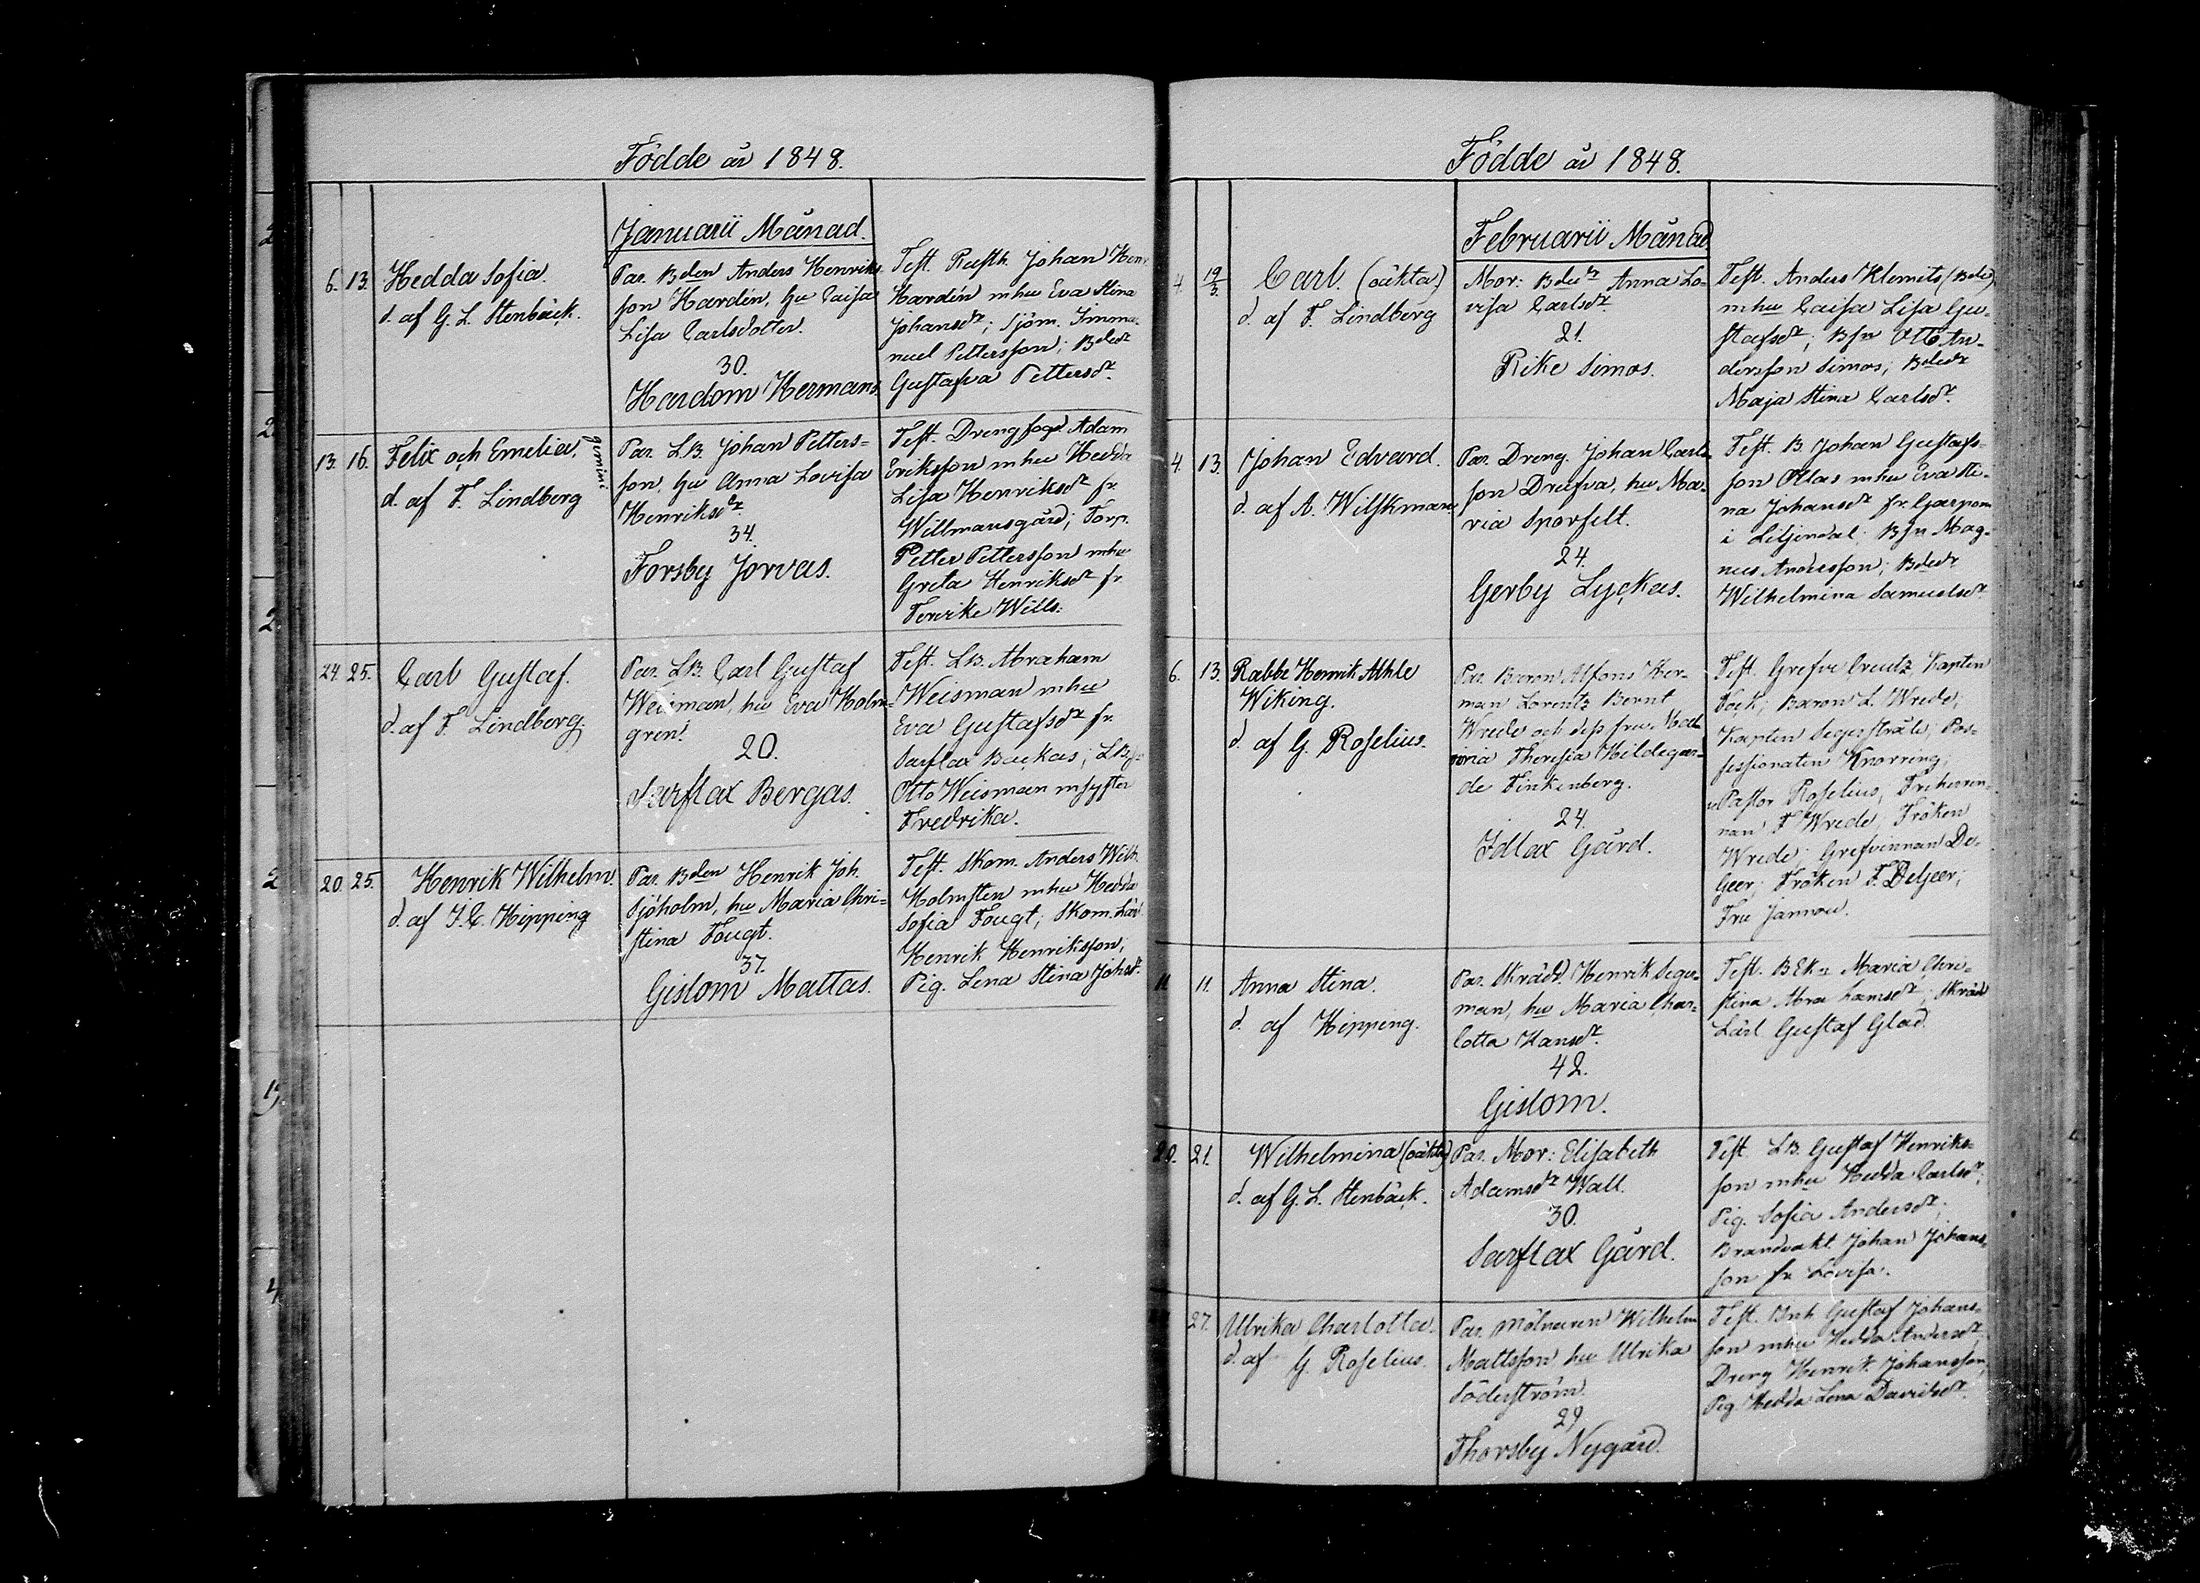 Födde år 1848.
Januarii Månad.
6. 13. Hedda Sofia.
d. af G. L. Stenbäck.
Par. Bden Anders Henriks-
son Hardén, hu Caisa
Lisa Carlsdotter.
30.
Hardom Hermans.
Test. Rusth. Johan Henr.
Hardén mhu Eva Stina
Johansdr; Sjöm. Imma-
nuel Pettersson; Bdedr
Gustafva Pettersdr.
13. 16. Felix och Emelia, gemini
d. af F. Lindberg
Par. LB. Johan Petters-
son, hu Anna Lovisa
Henriksdr
34.
Forsby Jorvas.
Test. Drengfogd Adam
Eriksson mhu Hedda
Lisa Henriksdr fr
Willmansgård; Torp.
Petter Pettersson mhu
Greta Henriksdr fr
Tervike Wills.
24. 25. Carl Gustaf.
d. af F. Lindberg.
Par. LB. Carl Gustaf
Weisman, hu Eva Holm-
gren.
20.
Sarflax Bergas.
Test. LB. Abraham
Weisman mhu
Eva Gustafsdr fr.
Sarflax Backas; LBs
Otto Weisman msyster
Fredrika.
20. 25. Henrik Wilhelm.
d. af J. E. Hipping
Par. Bden Henrik Joh.
Sjöholm, hu Maria Chri-
stina Fougt.
37.
Gislom Mattas.
Test. Skom. Anders Wilh.
Holmsten mhu Hedda
Sofia Fougt; Skom. Lärl.
Henrik Henriksson,
Pig. Lena Stina Johsdr.
Födde år 1848.
Februarii Månad
4. 19/3. Carl. (oäkta)
d. af F. Lindberg
Mor: Bdedr Anna Lo-
visa Carlsdr.
21.
Rike Simos.
Test. Anders Klemets (Bde)
mhu Caisa Lisa Gu-
stafsdr; Bsn Otto An-
dersson Simos; Bdedr
Maja Stina Carlsdr.
4. 13. Johan Edvard.
d. af A. Wilskman.
Par. Dreng. Johan Carls-
son Drufva, hu Ma-
ria Sporfelt.
24.
Gerby Lyckas.
Test. B. Johan Gustafs-
son Ollas mhu Eva Sti-
na Johansdr fr. Garpom
i Liljendal; Bsn Mag-
nus Andersson; Bdedr
Wilhelmina Samuelsdr.
6. 13. Rabbe Henrik Athle
Wiking.
d. af G. Roselius.
Par. Baron Alfons Her-
man Lorentz Bernt
Wrede och dess fru
Theresia Hildegar-
de Finkenberg.
24.
Idlax Gård.
Test. Grefve Creutz, Kapten
Fock; Baron L. Wrede;
Kapten Segerstråle; Pos-
sessionaten Knorring;
Pastor Roselius, Friherrin-
nan F. Wrede; Fröken
Wrede; Grefvinnan De-
Geer; Fröken F. DeGeer;
Fru Jannou.
11. 11. Anna Stina.
d. af Hipping.
Par. Skrädd. Henrik Seger-
man, hu Maria Char-
lotta Hansdr.
42.
Gislom.
Test. BEka Maria Chri-
stina Abra hamsdr; Skrädd
Lärl Gustaf Glad
20. 21. Wilhelmina (oäkta)
d. af G. L. Stenbäck.
Par. Mor: Elisabeth
Adamsdr Wall.
30.
Sarflax Gård.
Test. LB. Gustaf Henriks-
son mhu Hedda Carlsdr;
Pig. Sofia Andersdr;
Brandvakt. Johan Johans-
son fr. Lovisa.
27. Ulrika Charlotta.
d. af G. Roselius.
Par. Mölnaren Wilhelm
Mattsson, hu Ulrika
Söderström.
29
Thorsby Nygård.
Test. Inh. Gustaf Johans-
son mhu Hedda Andersdr;
Dreng Henrik Johansson,
Pig. Hedda Lena Davidsdr.